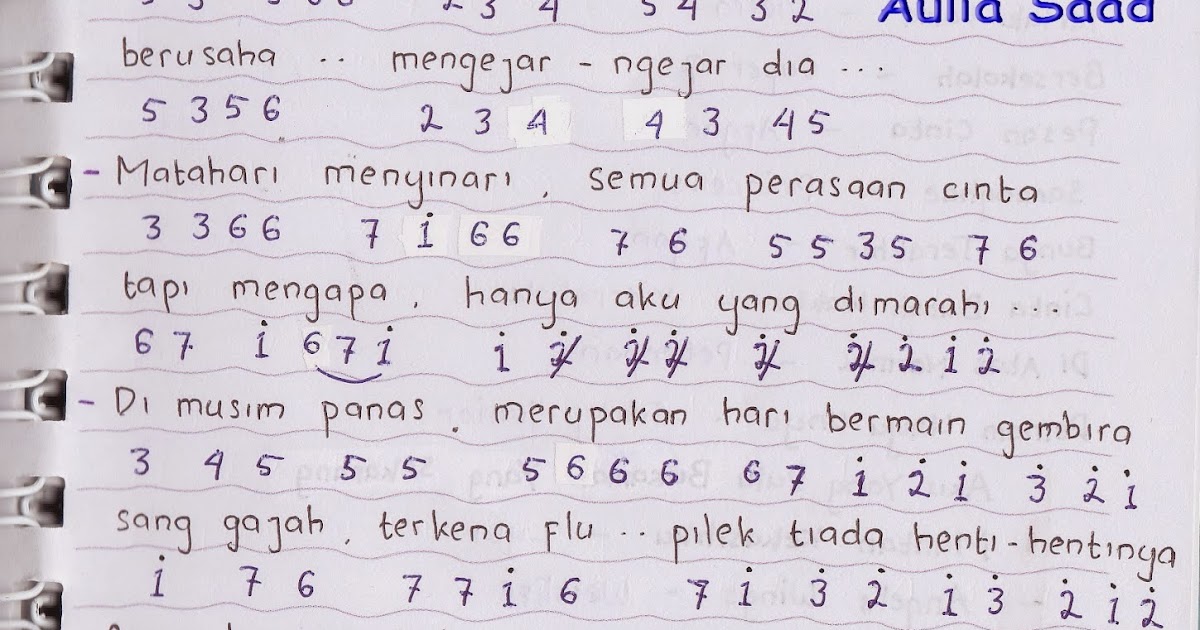 2 3 4 5 4 3 2 Aulia Saad
berusaha .. mengejar - ngejar dia ...
5 3 5 6 2 3 4 4 3 4 5
- Matahari menyinari, semua perasaan cinta
3 3 6 6 7 i 6 6 7 6 5 5 3 5 7 6
tapi mengapa, hanya aku yang dimarahi ....
6 7 i 6 7 i i 2̸̇ 2̸̇ 2̸̇ 2̸̇ 2̸̇ 2̇ i 2̇
- Di musim panas, merupakan hari bermain gembira
3 4 5 5 5 5 6 6 6 6 7 i 2̇ i 3̇ 2̇ i
sang gajah, terkena flu .. pilek tiada henti-hentinya
i 7 6 7 7 i 6 7 i 3̇ 2̇ i 3̇ 2̇ i 2̇